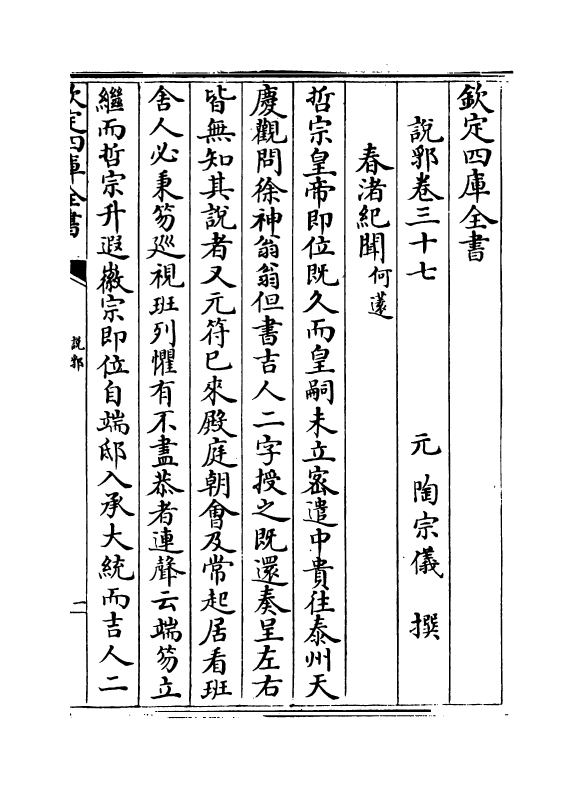 欽定四庫全書
說郛卷三十七 元 陶宗儀 撰
春渚紀聞何薳
哲宗皇帝即位既久而皇嗣未立宻遣中貴往泰州天
慶觀問徐神翁翁但書吉人二字授之既還奏呈左右
皆無知其說者又元符已來殿庭朝會及常起居看班
舍人必秉笏巡視班列懼有不盡恭者連聲云端笏立
繼而哲宗升遐徽宗即位自端邸入承大統而吉人二
欽定四庫全書
說郛